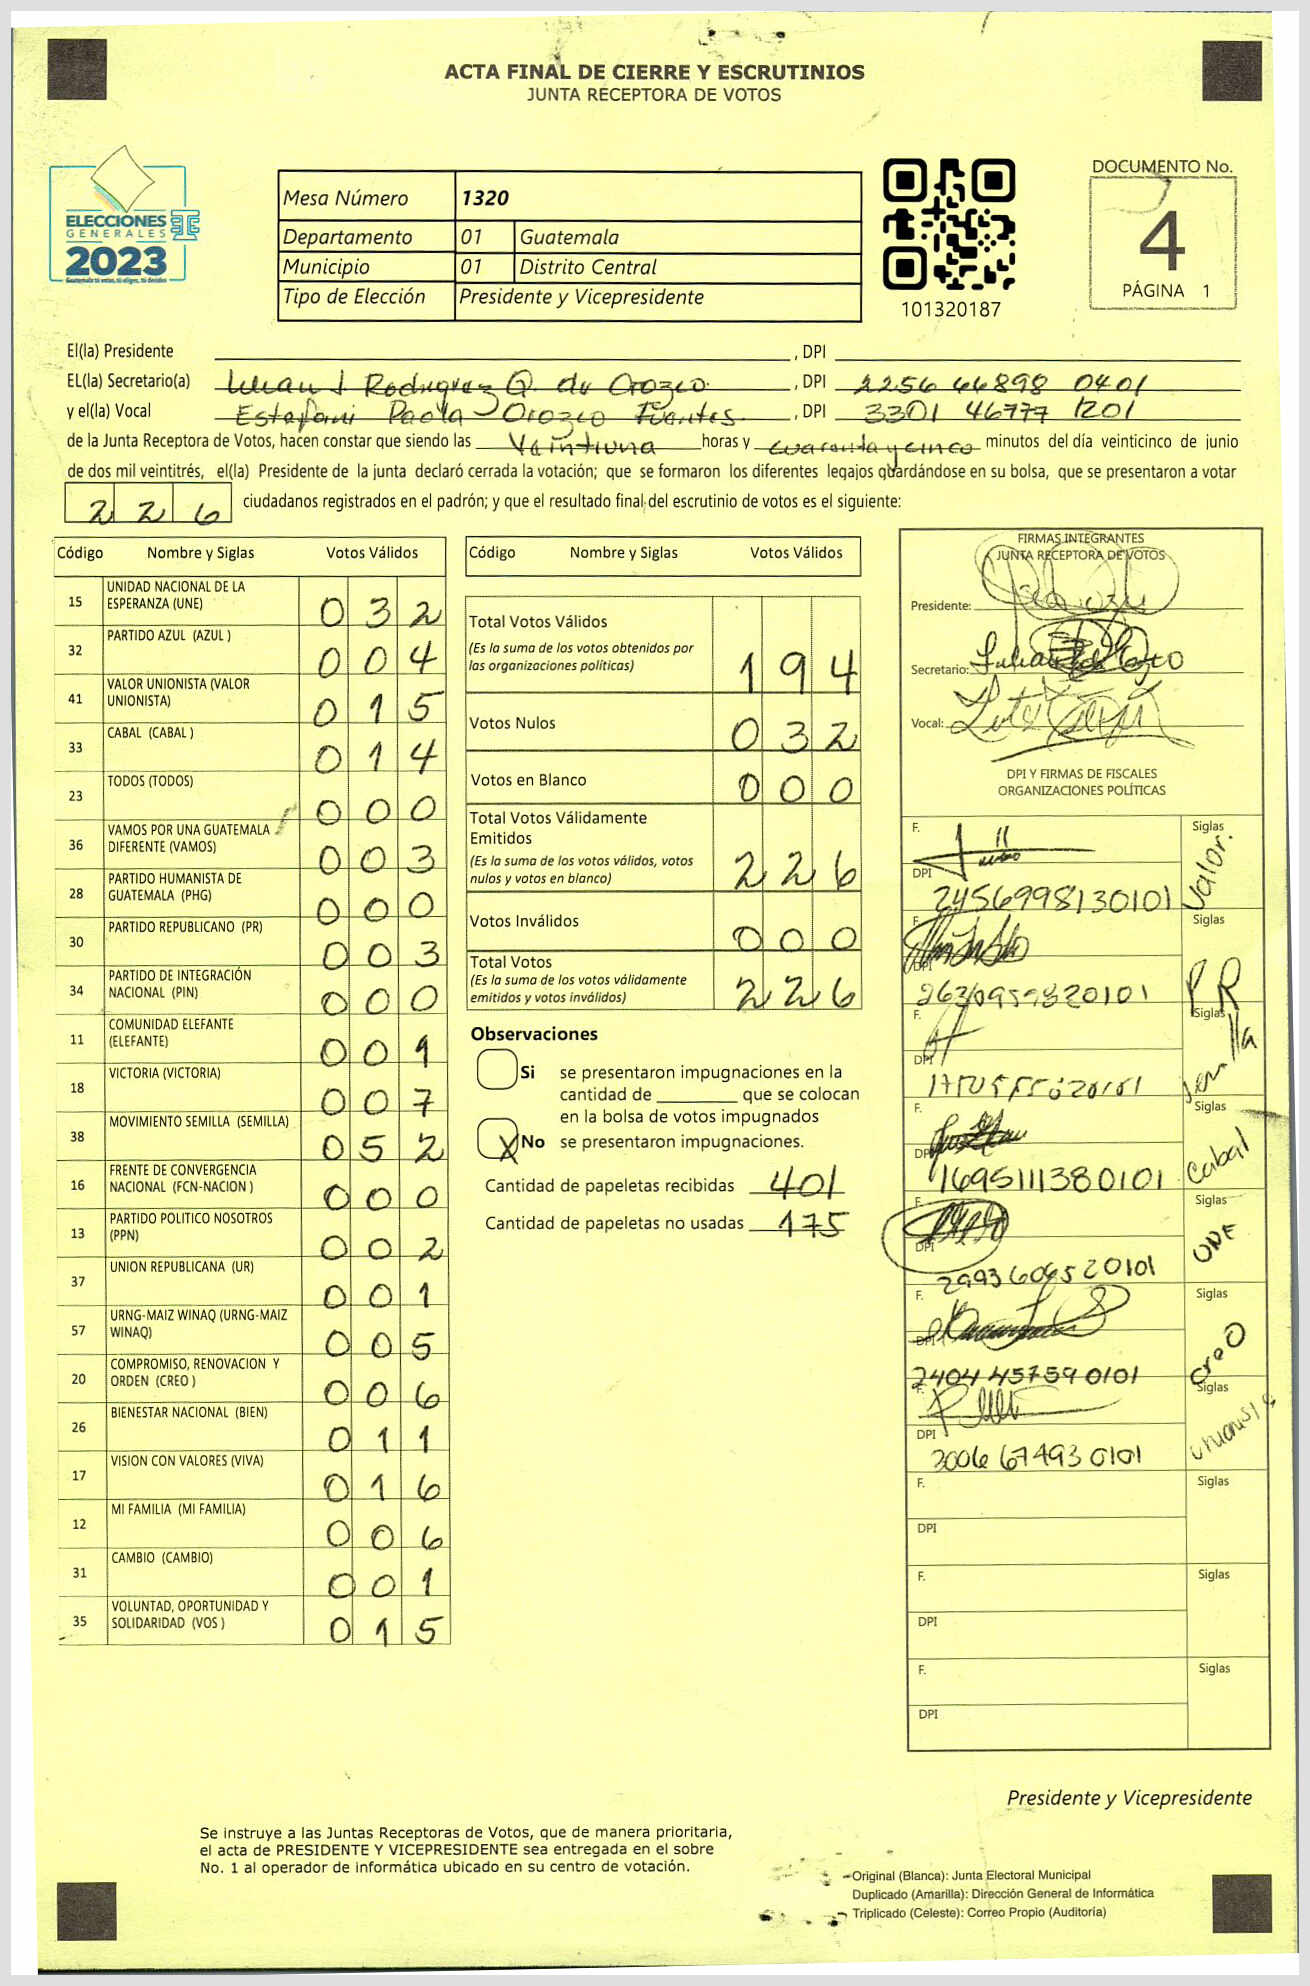 ACTA FINAL DE CIERRE Y ESCRUTINIOS
JUNTA RECEPTORA DE VOTOS
ELECCIONES
GENERALES
2023
Mesa Número 1320
Departamento 01 Guatemala
Municipio 01 Distrito Central
Tipo de Elección Presidente y Vicepresidente
101320187
DOCUMENTO No.
4
PÁGINA 1
El(la) Presidente , DPI
EL(la) Secretario(a) Lilian J. Rodriguez Q. de Orozco , DPI 2256 66898 0401
y el(la) Vocal Estefani Paola Orozco Fuentes , DPI 3301 46777 1201
de la Junta Receptora de Votos, hacen constar que siendo las Veintiuna horas y cuarenta y cinco minutos del día veinticinco de junio
de dos mil veintitrés, el(la) Presidente de la junta declaró cerrada la votación; que se formaron los diferentes legajos guardándose en su bolsa, que se presentaron a votar
226 ciudadanos registrados en el padrón; y que el resultado final del escrutinio de votos es el siguiente:
Código Nombre y Siglas Votos Válidos
15 UNIDAD NACIONAL DE LA ESPERANZA (UNE) 032
32 PARTIDO AZUL (AZUL ) 004
41 VALOR UNIONISTA (VALOR UNIONISTA) 015
33 CABAL (CABAL ) 014
23 TODOS (TODOS) 000
36 VAMOS POR UNA GUATEMALA DIFERENTE (VAMOS) 003
28 PARTIDO HUMANISTA DE GUATEMALA (PHG) 000
30 PARTIDO REPUBLICANO (PR) 003
34 PARTIDO DE INTEGRACIÓN NACIONAL (PIN) 000
11 COMUNIDAD ELEFANTE (ELEFANTE) 001
18 VICTORIA (VICTORIA) 007
38 MOVIMIENTO SEMILLA (SEMILLA) 052
16 FRENTE DE CONVERGENCIA NACIONAL (FCN-NACION ) 000
13 PARTIDO POLITICO NOSOTROS (PPN) 002
37 UNION REPUBLICANA (UR) 001
57 URNG-MAIZ WINAQ (URNG-MAIZ WINAQ) 005
20 COMPROMISO, RENOVACION Y ORDEN (CREO ) 006
26 BIENESTAR NACIONAL (BIEN) 011
17 VISION CON VALORES (VIVA) 016
12 MI FAMILIA (MI FAMILIA) 006
31 CAMBIO (CAMBIO) 001
35 VOLUNTAD, OPORTUNIDAD Y SOLIDARIDAD (VOS ) 015
Código Nombre y Siglas Votos Válidos
Total Votos Válidos 194
(Es la suma de los votos obtenidos por
las organizaciones políticas)
Votos Nulos 032
Votos en Blanco 000
Total Votos Válidamente
Emitidos 226
(Es la suma de los votos válidos, votos
nulos y votos en blanco)
Votos Inválidos 000
Total Votos 226
(Es la suma de los votos válidamente
emitidos y votos inválidos)
Observaciones
Si se presentaron impugnaciones en la
cantidad de ________ que se colocan
en la bolsa de votos impugnados
X No se presentaron impugnaciones.
Cantidad de papeletas recibidas 401
Cantidad de papeletas no usadas 175
FIRMAS INTEGRANTES
JUNTA RECEPTORA DE VOTOS
Presidente:
Secretario:
Vocal:
DPI Y FIRMAS DE FISCALES
ORGANIZACIONES POLÍTICAS
F. Siglas Valor.
DPI 2456998130101
F. Siglas PR
DPI
F. Siglas Semilla
DPI
F. Siglas Cabal
DPI 1695111380101
F. Siglas UNE
DPI 2993606520101
F. Siglas CREO
DPI 2404 45759 0101
F. Siglas Unionista
DPI 3006 67493 0101
F. Siglas
DPI
F. Siglas
DPI
F. Siglas
DPI
Presidente y Vicepresidente
Se instruye a las Juntas Receptoras de Votos, que de manera prioritaria,
el acta de PRESIDENTE Y VICEPRESIDENTE sea entregada en el sobre
No. 1 al operador de informática ubicado en su centro de votación.
Original (Blanca): Junta Electoral Municipal
Duplicado (Amarilla): Dirección General de Informática
Triplicado (Celeste): Correo Propio (Auditoría)